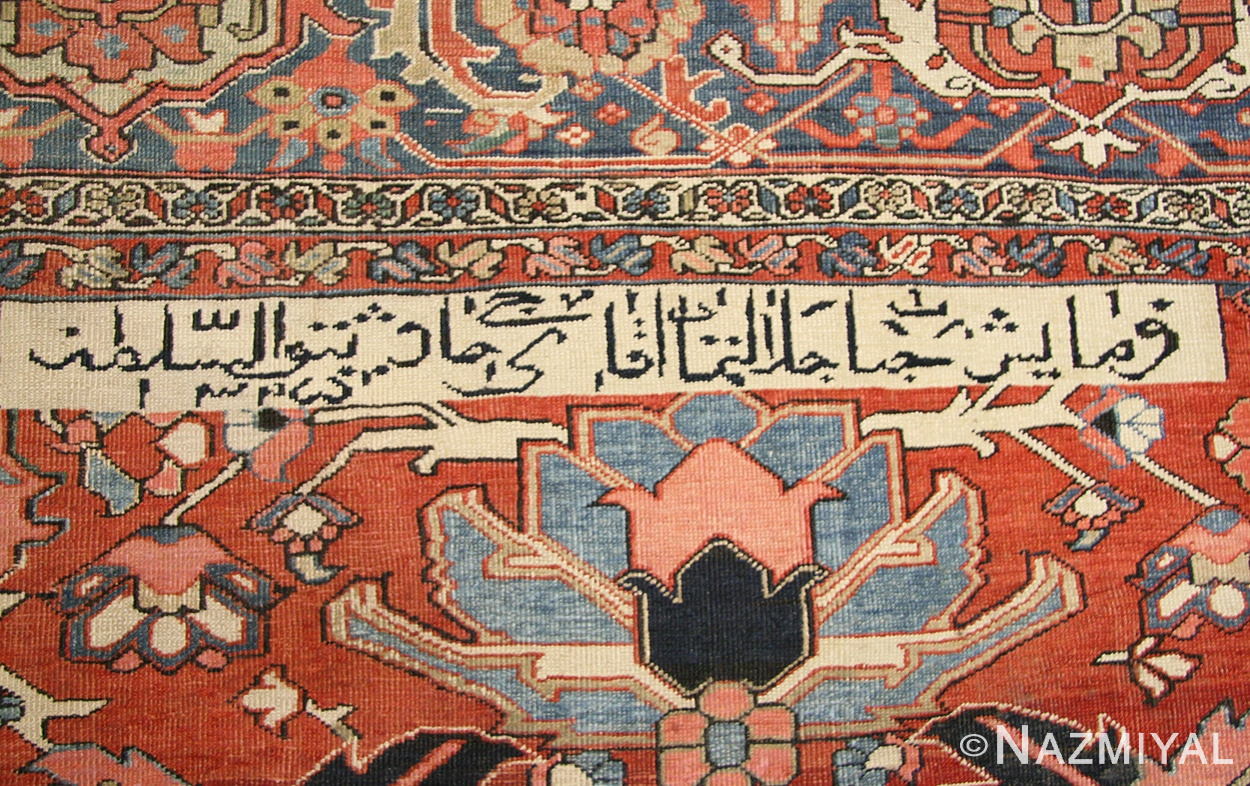 فرمایش جناب جلالتماب اقای حاجی السلطنه
© NAZMIYAL